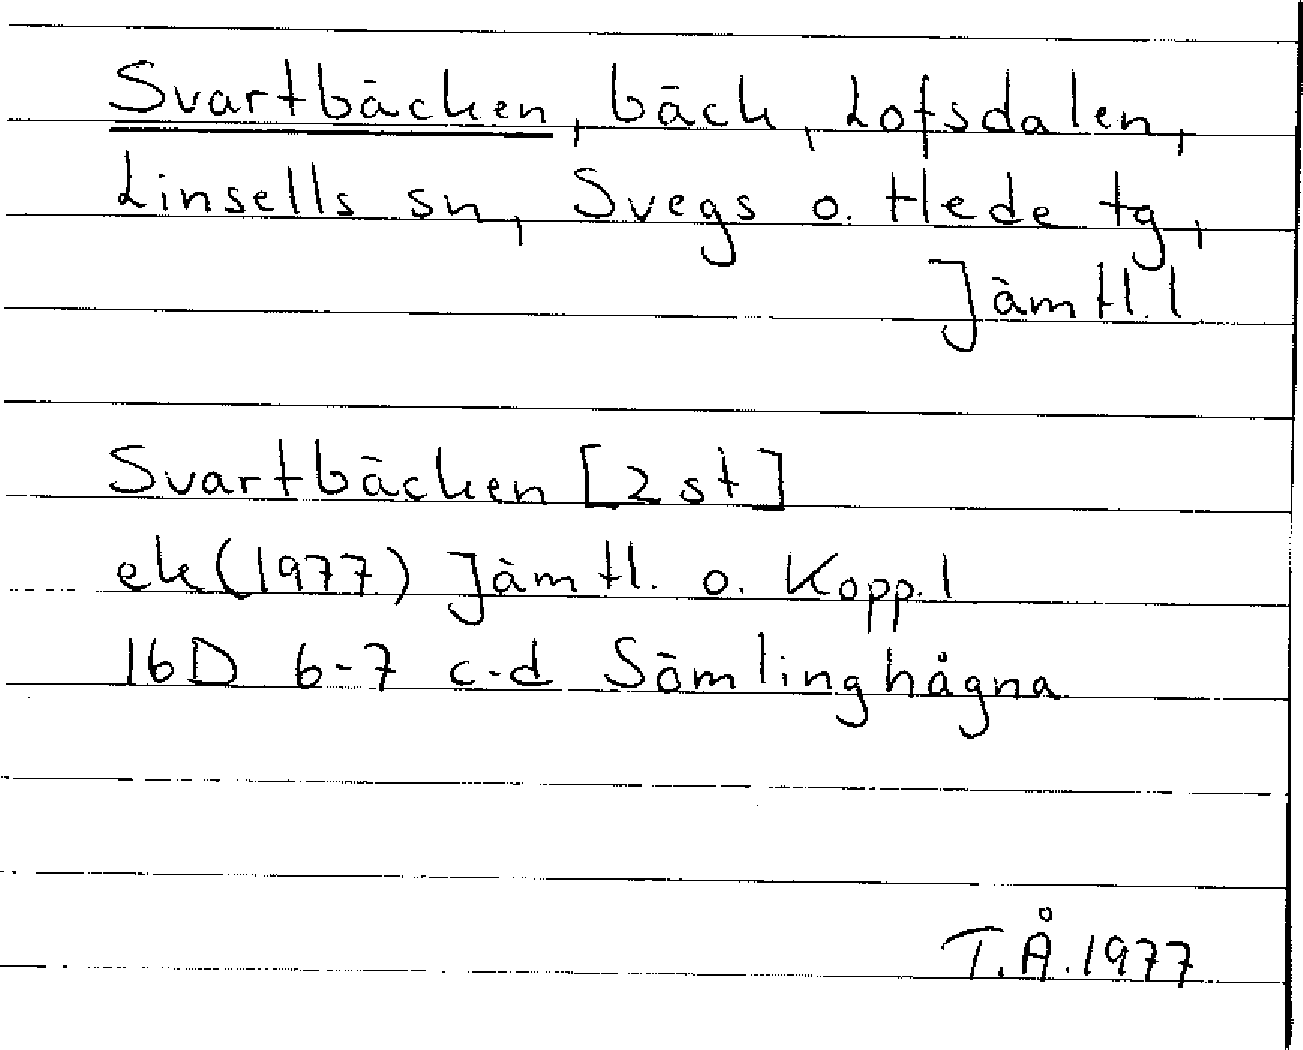 Svartbäcken, bäck, Lofsdalen,
Linsells sn, Svegs o. Hede tg,
Jämtl. l
Svartbäcken [2 st]
ek (1977) Jämtl. o. Kopp. l
16D 6-7 c-d Sömlinghågna
T.Å. 1977